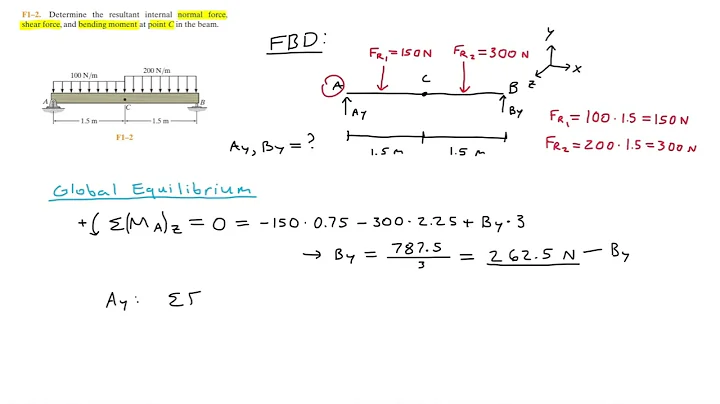 F1–2. Determine the resultant internal normal force,
shear force, and bending moment at point C in the beam.
100 N/m
200 N/m
A
C
B
1.5 m
1.5 m
F1–2
FBD:
FR1 = 150 N
FR2 = 300 N
A
C
B
Ay
By
y
x
z
1.5 m
1.5 m
Ay, By = ?
FR1 = 100 · 1.5 = 150 N
FR2 = 200 · 1.5 = 300 N
Global Equilibrium
+ Σ(MA)z = 0 = -150 · 0.75 - 300 · 2.25 + By · 3
→ By = 787.5 / 3 = 262.5 N — By
Ay: Σ Γ